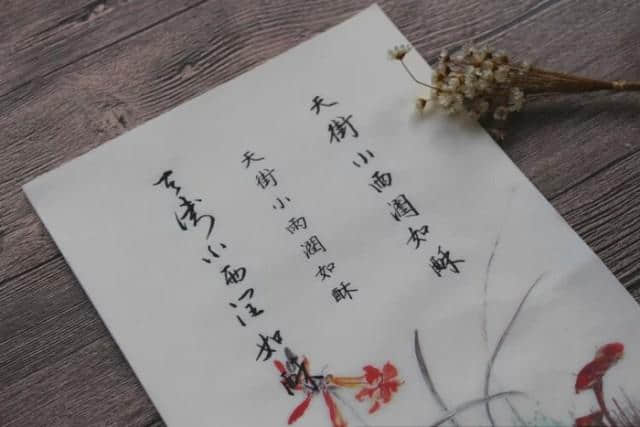 天街小雨潤如酥
天街小雨潤如酥
天街小雨润如酥